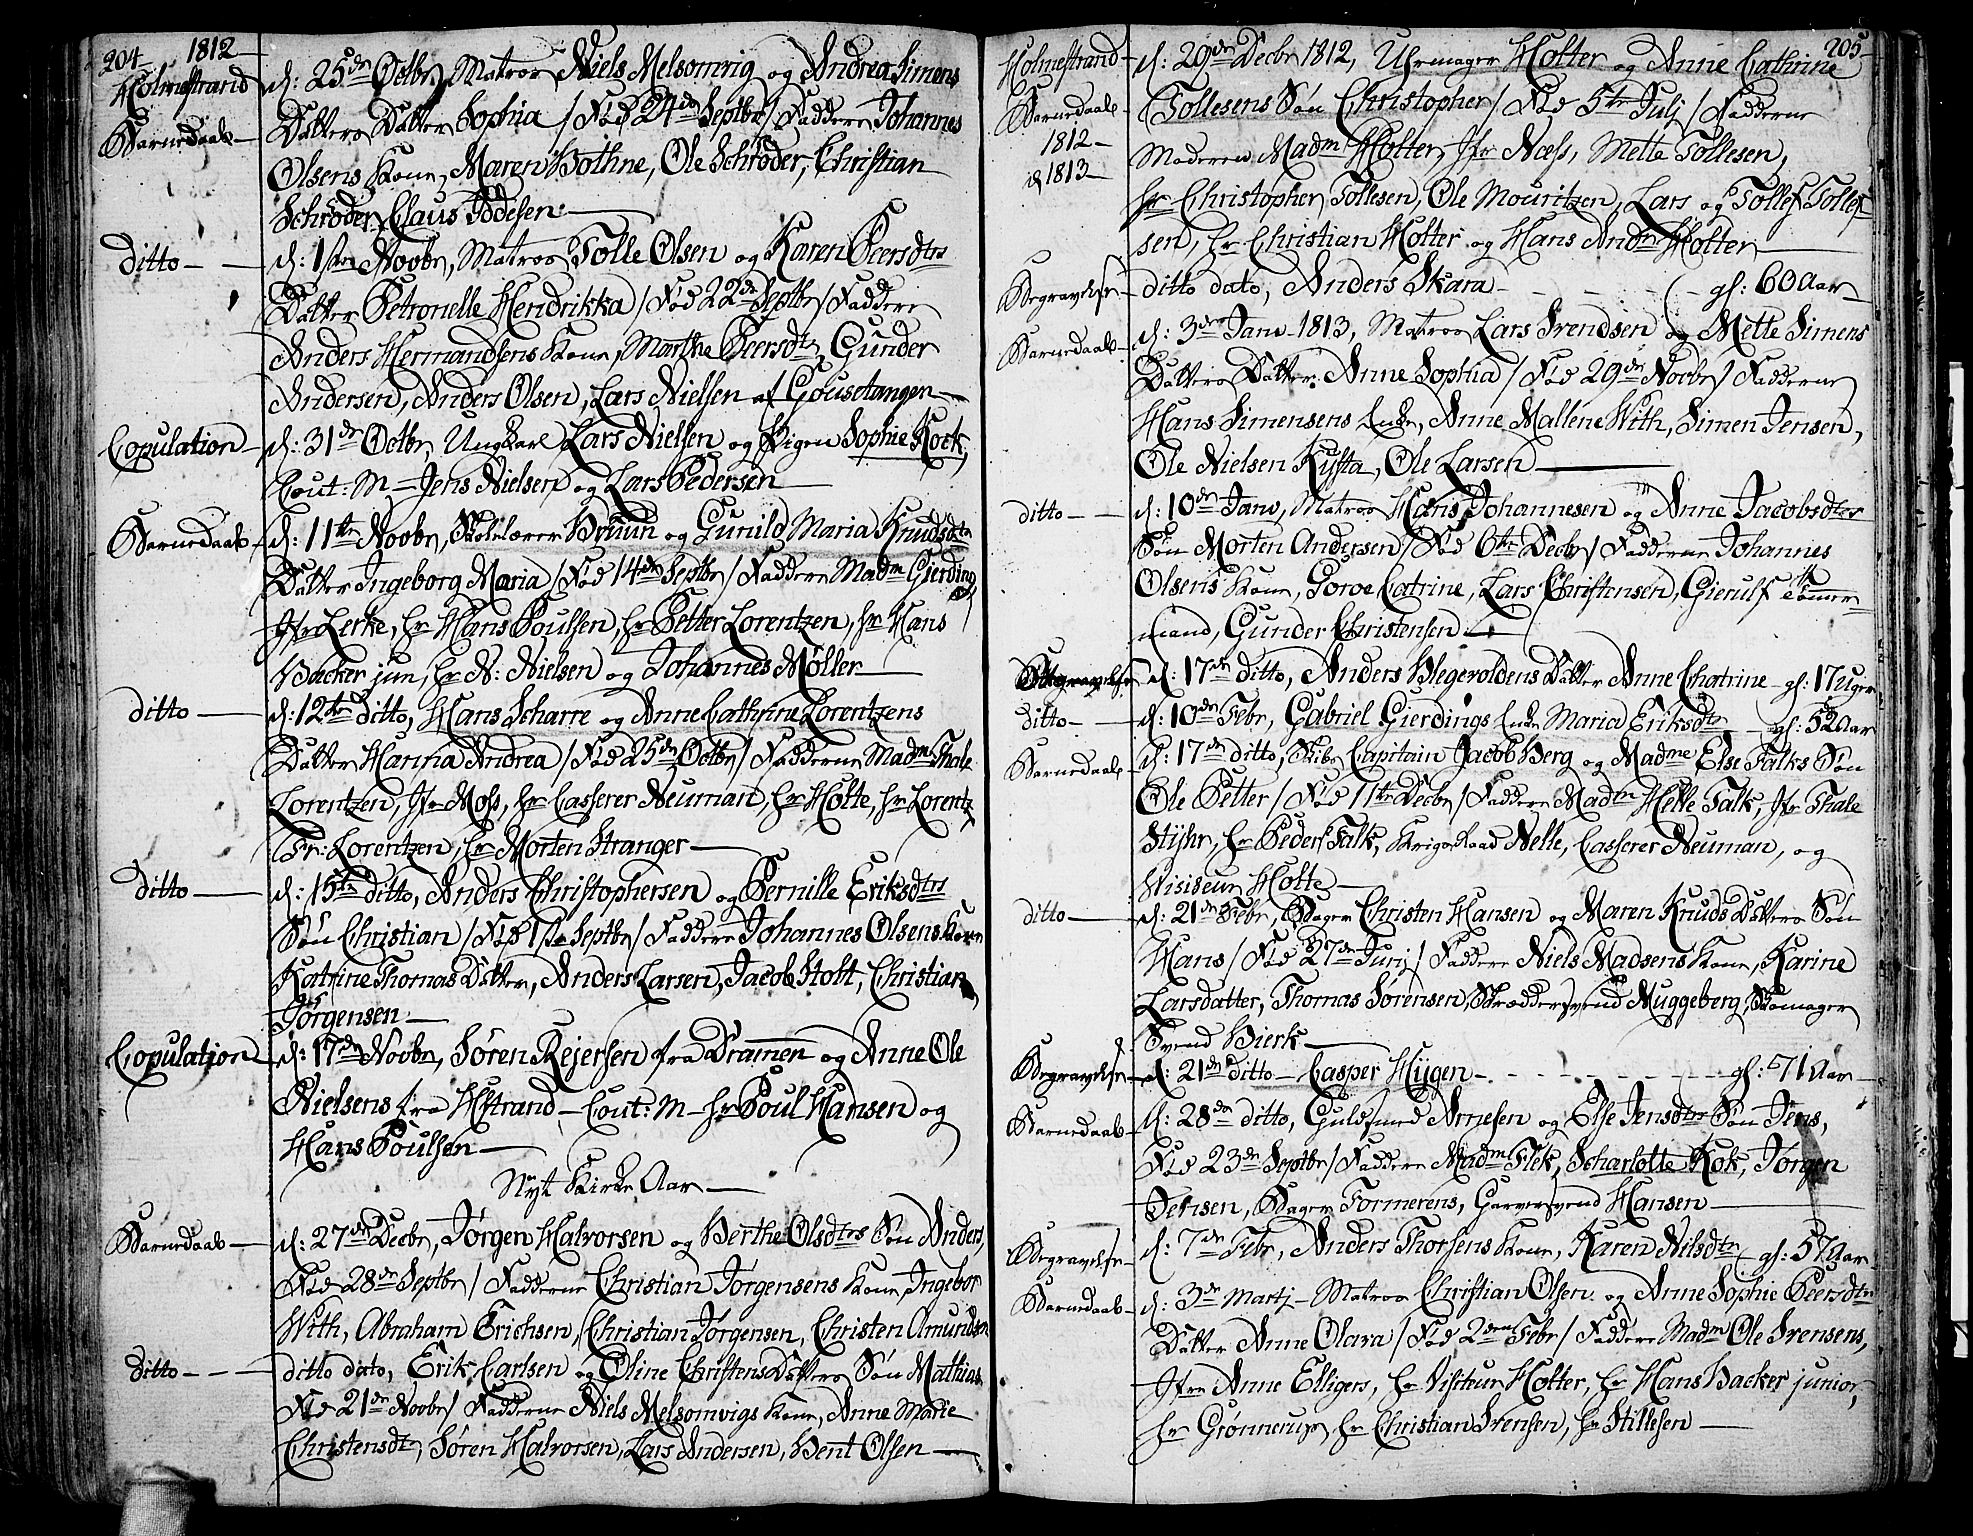 204 1812
Holmestrand
Barnedaab
d: 25de Octbr, Matros Niels Melsomvig og Andrea Simens
Datters Datter Sophia / Fød 24de Septbr / Faddere Johannes
Olsens Kone, Maren Bothne, Ole Schrøder, Christian
Schrøder, Claus Iddesen
ditto d: 1ste Novbr, Matros Tolle Olsen og Karen Peersdtrs
Datter Petronelle Hendrikka / Fød 22de Septbr / Faddere
Anders Hermandsens Kone, Marthe Peersdtr, Gunder
Andersen, Anders Olsen, Lars Nielsen af Gousetangen
Copulation d: 31de Octbr, Ungkarl Lars Nielsen og Pigen Sophie Kock,
Cout: M – Jens Nielsen og Lars Pedersen
Barnedaab d: 11te Novbr, Skolelærer Bruun og Gunild Maria Knudsdtrs
Datter Ingeborg Maria / Fød 14de Septbr / Faddere Madm Gierding,
Jfr Lerke, hr Hans Poulsen, hr Petter Lorentzen, hr Hans
Backer jun, hr N: Nielsen og Johannes Møller
ditto d: 12te ditto, Hans Scharre og Anne Cathrine Lorentzens
Datter Hanna Andrea / Fød 25de Octbr / Fadderne Madm Thale
Lorentzen, Jfr Moss, hr Casserer Neuman, hr Holte, hr Lorentz
Fr: Lorentzen, hr Morten Stranger
ditto d: 15te ditto, Anders Christophersen og Pernille Eriksdtrs
Søn Christian / Fød 1ste Septbr / Faddere Johannes Olsens Kone
Katrine Thomas Datter, Anders Larsen, Jacob Holt, Christian
Jørgensen
Copulation d: 17de Novbr, Søren Rejersen fra Dramen og Anne Ole
Nielsens fra Hstrand – Cout: M – hr Poul Hansen og
Hans Poulsen
Nyt Kirke Aar
Barnedaab d: 27de Decbr, Jørgen Halvorsen og Berthe Olsdtrs Søn Anders,
Fød 28de Septbr / Fadderne Christian Jørgensens Kone, Ingebor
With, Abraham Erichsen, Christian Jørgensen, Christen Amundsen
ditto ditto dato, Erik Carlsen og Oline Christens Datters Søn Mathias
Fød 21de Novbr / Fadderne Niels Melsomvigs Kone, Anne Marie
Christensdtr, Søren Halvorsen, Lars Andersen, Bent Olsen
205
Holmestrand
Barnedaab
1812
d 1813
d: 29de Decbr 1812, Uhrmager Holter og Anne Cathrine
Tollesens Søn Christopher / Fød 5te Julj / Fadderne
Moderen Madm Holter, Jfr Næss, Mette Tollesen,
hr Christopher Tollesen, Ole Mouritzen, Lars og Tollef Tollef
sen, hr Christian Holter og Hans Andr Holter
Begravelse ditto dato, Anders Skara gl: 60 Aar
Barnedaab d: 3de Janv 1813, Matros Lars Svendsen og Mette Simens
Datters Datter Anne Sophia / Fød 29de Novbr / Fadderne
Hans Simensens Enke, Anne Mallene With, Simen Jensen,
Ole Nielsen Kysta, Ole Larsen
ditto d: 10de Janv, Matros Hans Johannesen og Anne Jacobsdtrs
Søn Morten Andersen / Fød 6te Decbr / Fadderne Johannes
Olsens Kone, Gorve Catrine, Lars Christensen, Gierulf Tømmer
mand, Gunder Christensen
Begravelse d: 17de ditto, Anders Blegevoldens Datter Anne Chatrine gl: 17 Uger
ditto d: 10de Febr, Gabriel Gierdings Enke Maria Eriksdtr gl: 52 Aar
Barnedaab d: 17de ditto, Skibs Capitain Jacob Berg og Madme Else Falks Søn
Ole Petter / Fød 11te Decbr / Faddere Madm Helle Falk, Jfr Thale
Stijhr, hr Peder Falk, Krigsraad Nelle, Casserer Neuman, og
Visiteur Holte
ditto d: 21de Febr, Bager Christen Hansen og Maren Knuds Datters Søn
Hans / Fød 27de Junj / Faddere Niels Madsens Kone, Karine
Larsdatter, Thomas Sørensen, Skræddersvend Muggeberg, Skomager
Svend Bierk
Begravelse d: 21de ditto – Casper Hygen gl: 71 Aar
Barnedaab d: 28de ditto, Guldsmed Arnesen og Else Jensdtrs Søn Jens,
Fød 23de Septbr / Faddere Madm Flek, Scharlotte Kok, Jørgen
Jensen, Bager Formerens, Garversvend Hansen
Begravelse d: 7de Febr, Anders Thorsens Kone, Karen Nilsdtr gl: 57 Aar
Barnedaab d: 3de Martj – Matros Christian Olsen og Anne Sophie Peersdtrs
Datter Anne Olara / Fød 2den Febr / Faddere Madm Ole Svensens,
Jfr Anne Elligers, hr Visiteur Holter, hr Hans Backer junior,
hr Grønnerup, hr Christian Svensen, hr Stillesen